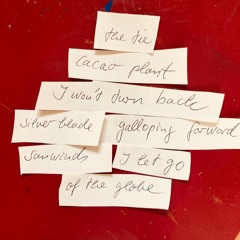 the tie
Cacao plant
I won't turn back
silver blade galloping forward
sunwinds I let go
of the globe